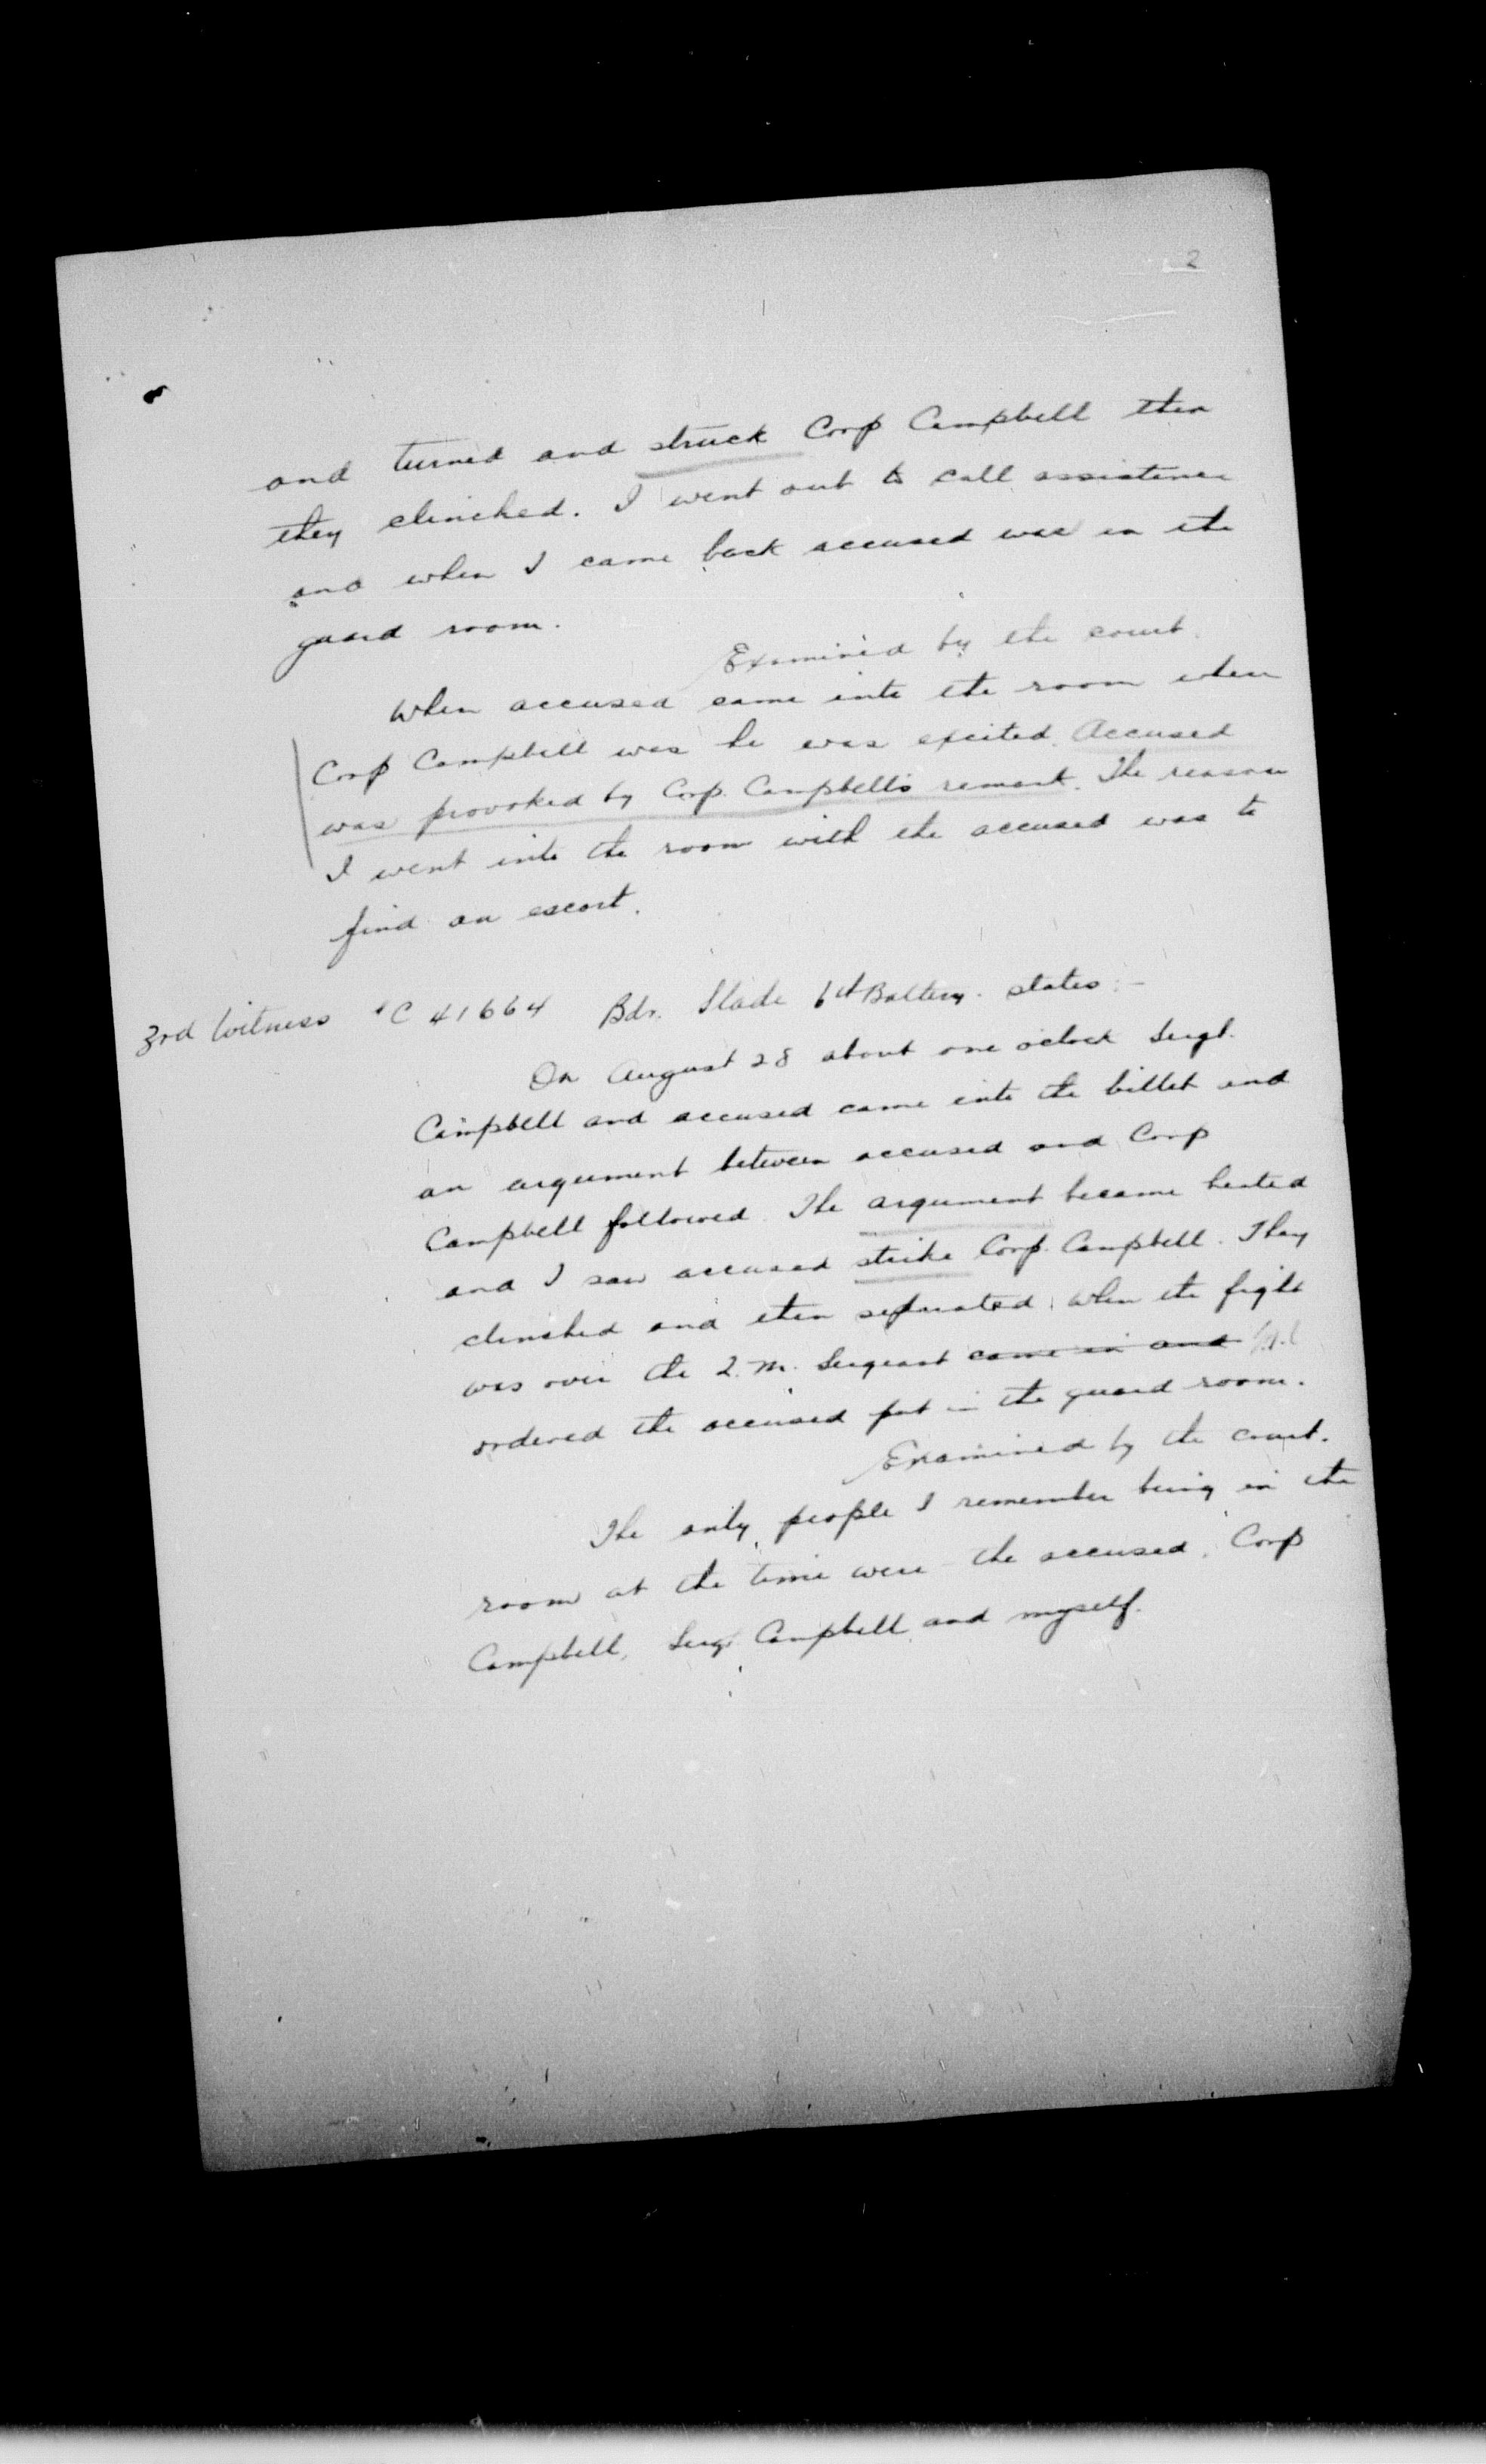 2
and turned and struck Corp Campbell then
they clinched. I went out to call assistance
and when I came back accused was in the
guard room.
Examined by the court.
When accused came into the room when
Corp Campbell was he was excited. Accused
was provoked by Corp. Campbell's remark. The reason
I went into the room with the accused was to
find an escort.
3rd Witness C 41664 Bdr. Slade 6th Battery. states:-
On August 28 about one o'clock Sergt.
Campbell and accused came into the billet and
an argument between accused and Corp
Campbell followed. The argument became heated
and I saw accused strike Corp. Campbell. They
clinched and then separated. When the fight
was over the Q.M. Sergeant came in and
ordered the accused put in the guard room.
Examined by the court.
The only people I remember being in the
room at the time were the accused, Corp
Campbell, Sergt Campbell and myself.